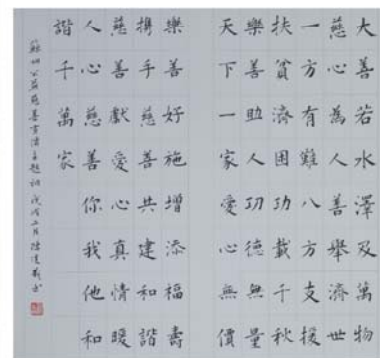 大善若水澤及萬物
慈心為人善舉濟世
一方有難八方支援
扶貧濟困功載千秋
樂善助人功德無量
天下一家愛心無價
樂善好施增添福壽
攜手慈善共建和諧
慈善獻愛心真情暖
人心慈善你我他和
諧千萬家
蘇州公益慈善 題詞 戊戌 月 書